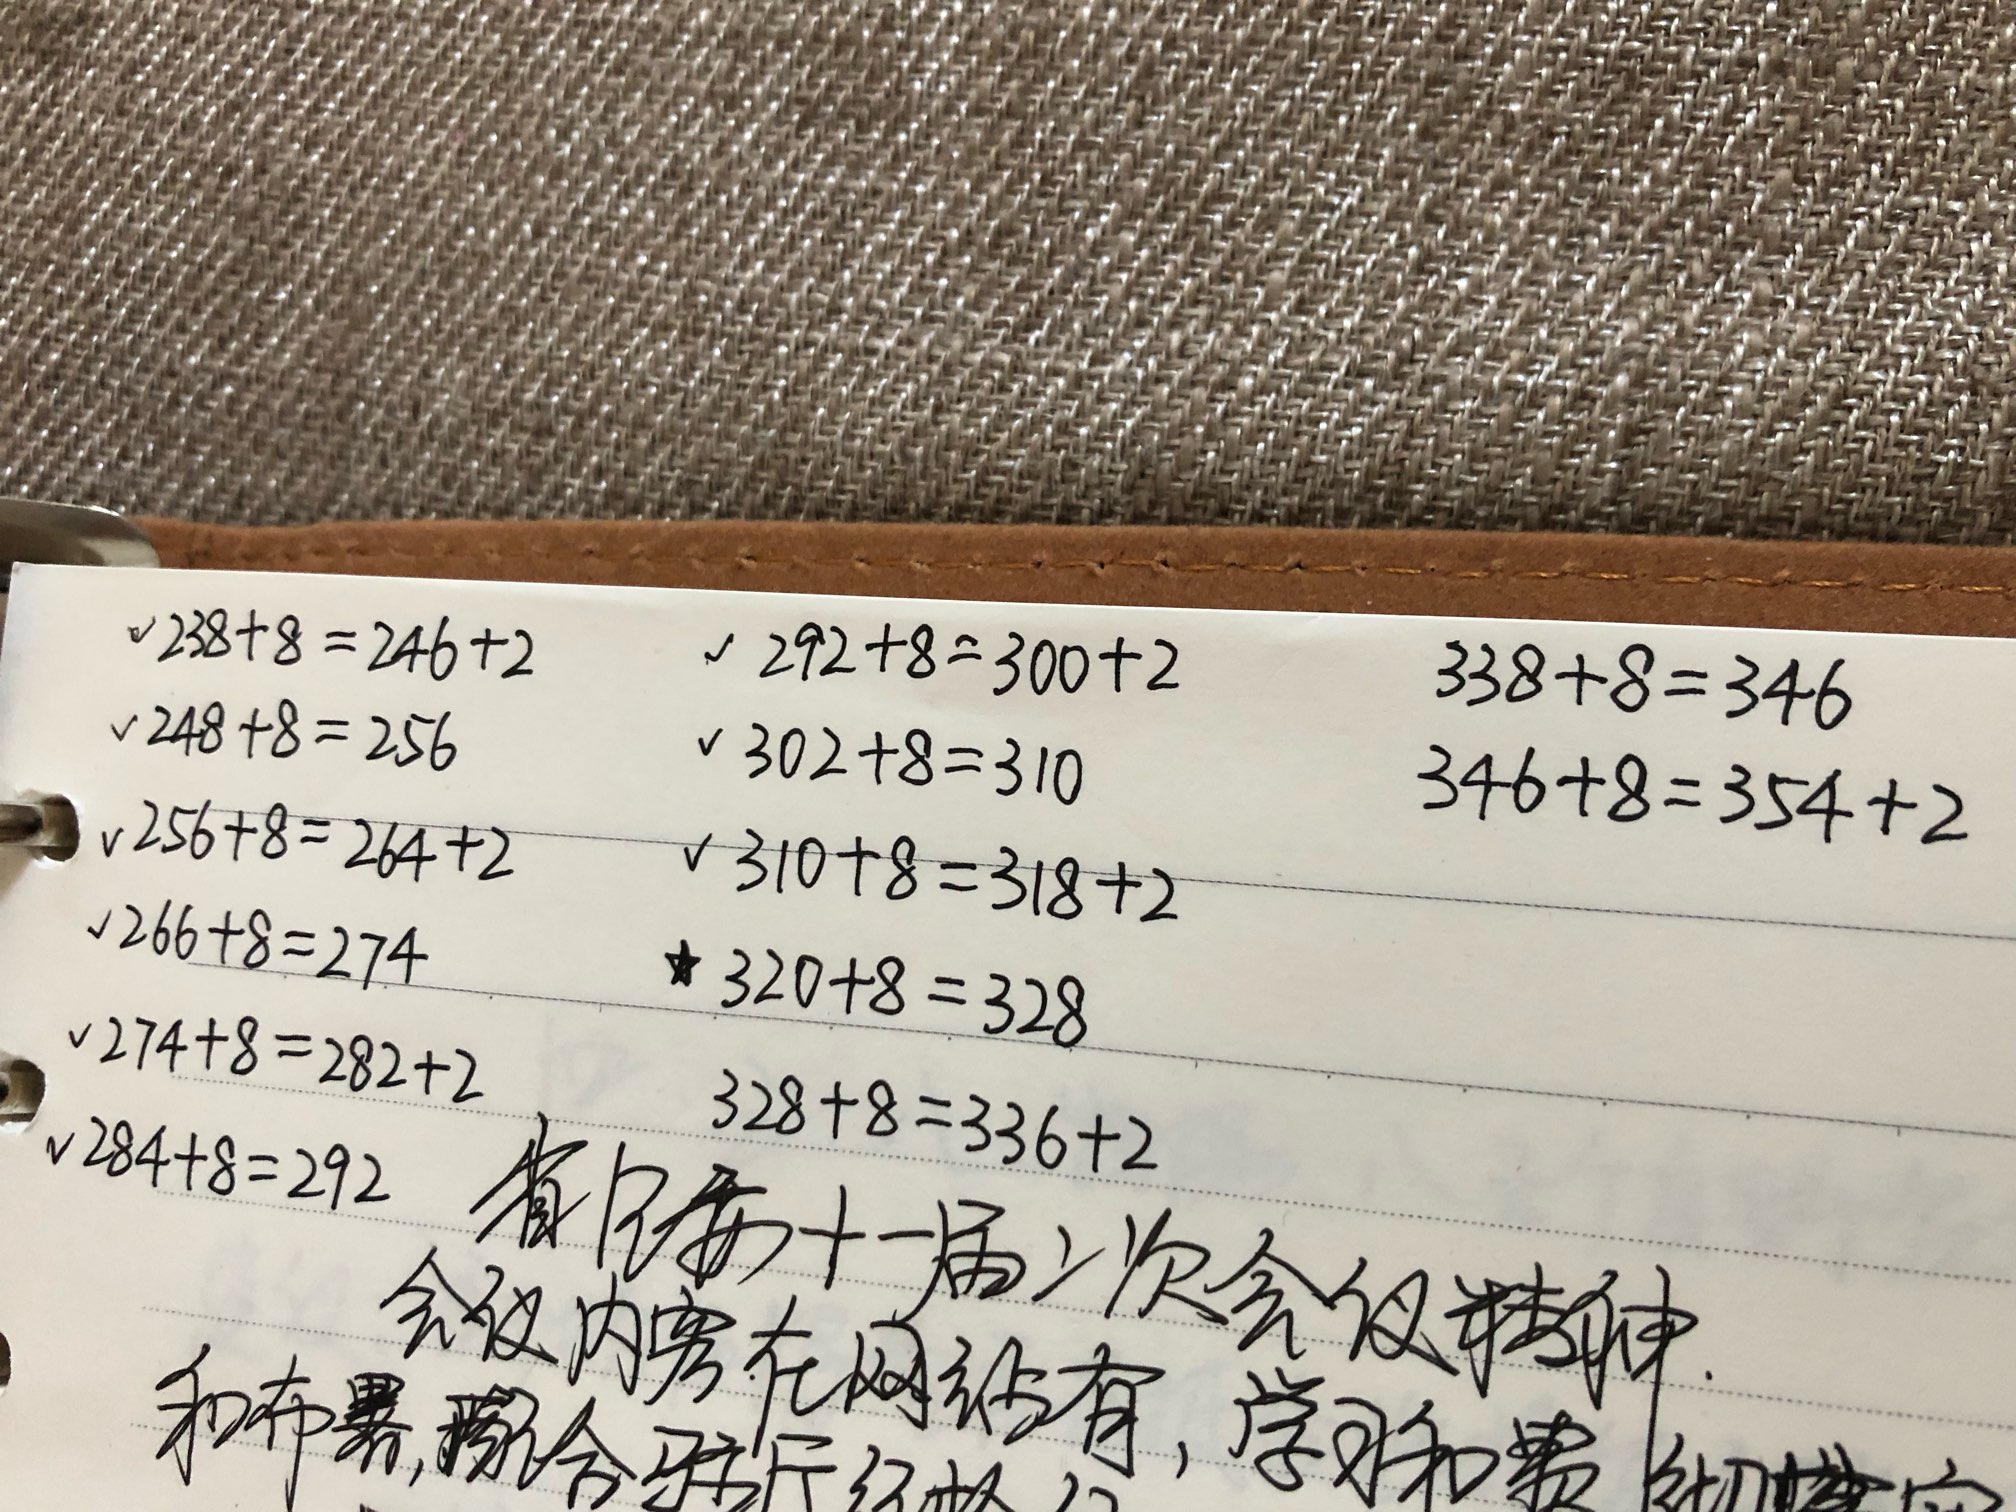 ✓238+8=246+2
✓248+8=256
✓256+8=264+2
✓266+8=274
✓274+8=282+2
✓284+8=292
✓292+8=300+2
✓302+8=310
✓310+8=318+2
★320+8=328
328+8=336+2
338+8=346
346+8=354+2
省纪委十一届二次会议精神.
会议内容在网站有,学习和贯彻
和布署,结合